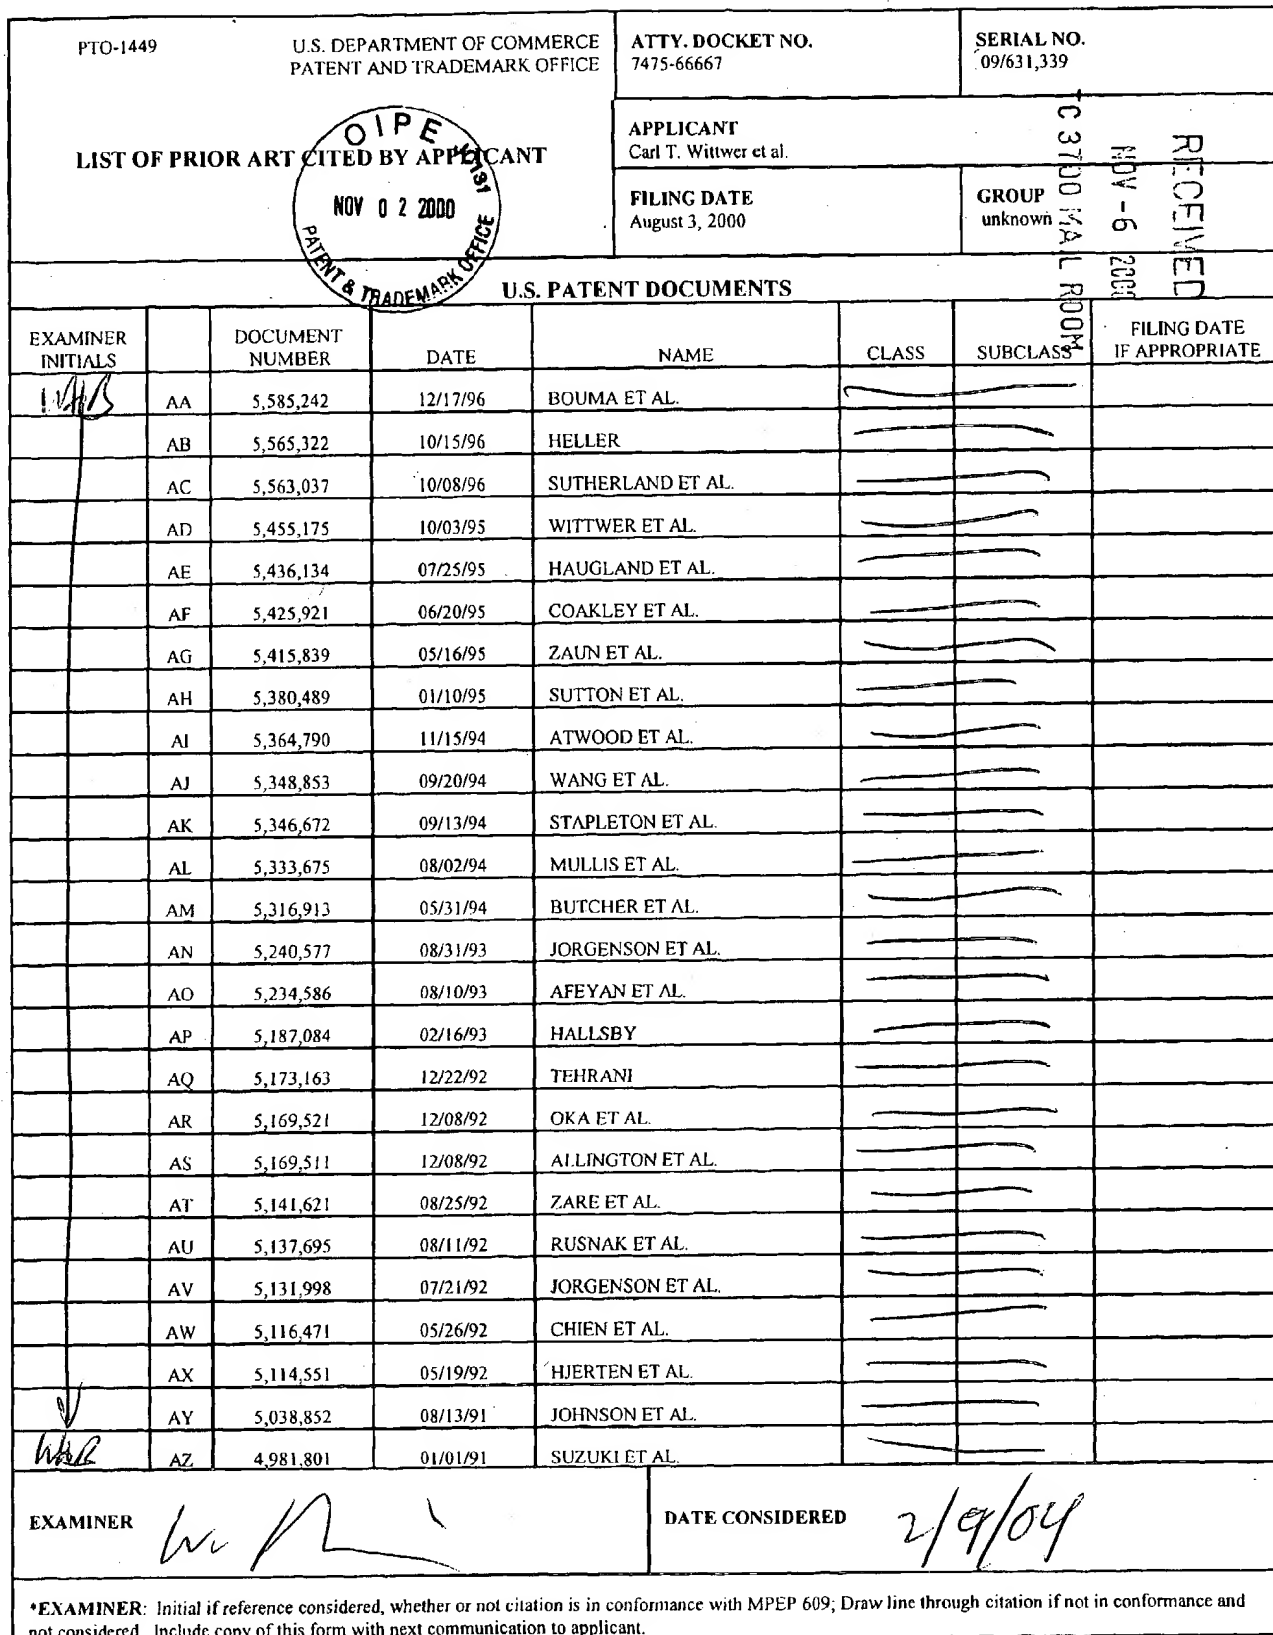 PTO-1449
U.S. DEPARTMENT OF COMMERCE
PATENT AND TRADEMARK OFFICE
LIST OF PRIOR ART CITED BY APPLICANT
OIPE
NOV 02 2000
PATENT & TRADEMARK OFFICE
ATTY. DOCKET NO.
7475-66667
SERIAL NO.
09/631,339
APPLICANT
Carl T. Wittwer et al.
FILING DATE
August 3, 2000
GROUP
unknown
RECEIVED
NOV -6 2000
TC 3700 MAIL ROOM
U.S. PATENT DOCUMENTS
EXAMINER INITIALS DOCUMENT NUMBER DATE NAME CLASS SUBCLASS FILING DATE IF APPROPRIATE
AA 5,585,242 12/17/96 BOUMA ET AL.
AB 5,565,322 10/15/96 HELLER
AC 5,563,037 10/08/96 SUTHERLAND ET AL.
AD 5,455,175 10/03/95 WITTWER ET AL.
AE 5,436,134 07/25/95 HAUGLAND ET AL.
AF 5,425,921 06/20/95 COAKLEY ET AL.
AG 5,415,839 05/16/95 ZAUN ET AL.
AH 5,380,489 01/10/95 SUTTON ET AL.
AI 5,364,790 11/15/94 ATWOOD ET AL.
AJ 5,348,853 09/20/94 WANG ET AL.
AK 5,346,672 09/13/94 STAPLETON ET AL.
AL 5,333,675 08/02/94 MULLIS ET AL.
AM 5,316,913 05/31/94 BUTCHER ET AL.
AN 5,240,577 08/31/93 JORGENSON ET AL.
AO 5,234,586 08/10/93 AFEYAN ET AL.
AP 5,187,084 02/16/93 HALLSBY
AQ 5,173,163 12/22/92 TEHRANI
AR 5,169,521 12/08/92 OKA ET AL.
AS 5,169,511 12/08/92 ALLINGTON ET AL.
AT 5,141,621 08/25/92 ZARE ET AL.
AU 5,137,695 08/11/92 RUSNAK ET AL.
AV 5,131,998 07/21/92 JORGENSON ET AL.
AW 5,116,471 05/26/92 CHIEN ET AL.
AX 5,114,551 05/19/92 HJERTEN ET AL.
AY 5,038,852 08/13/91 JOHNSON ET AL.
AZ 4,981,801 01/01/91 SUZUKI ET AL.
EXAMINER
DATE CONSIDERED 2/9/04
*EXAMINER: Initial if reference considered, whether or not citation is in conformance with MPEP 609; Draw line through citation if not in conformance and
not considered. Include copy of this form with next communication to applicant.